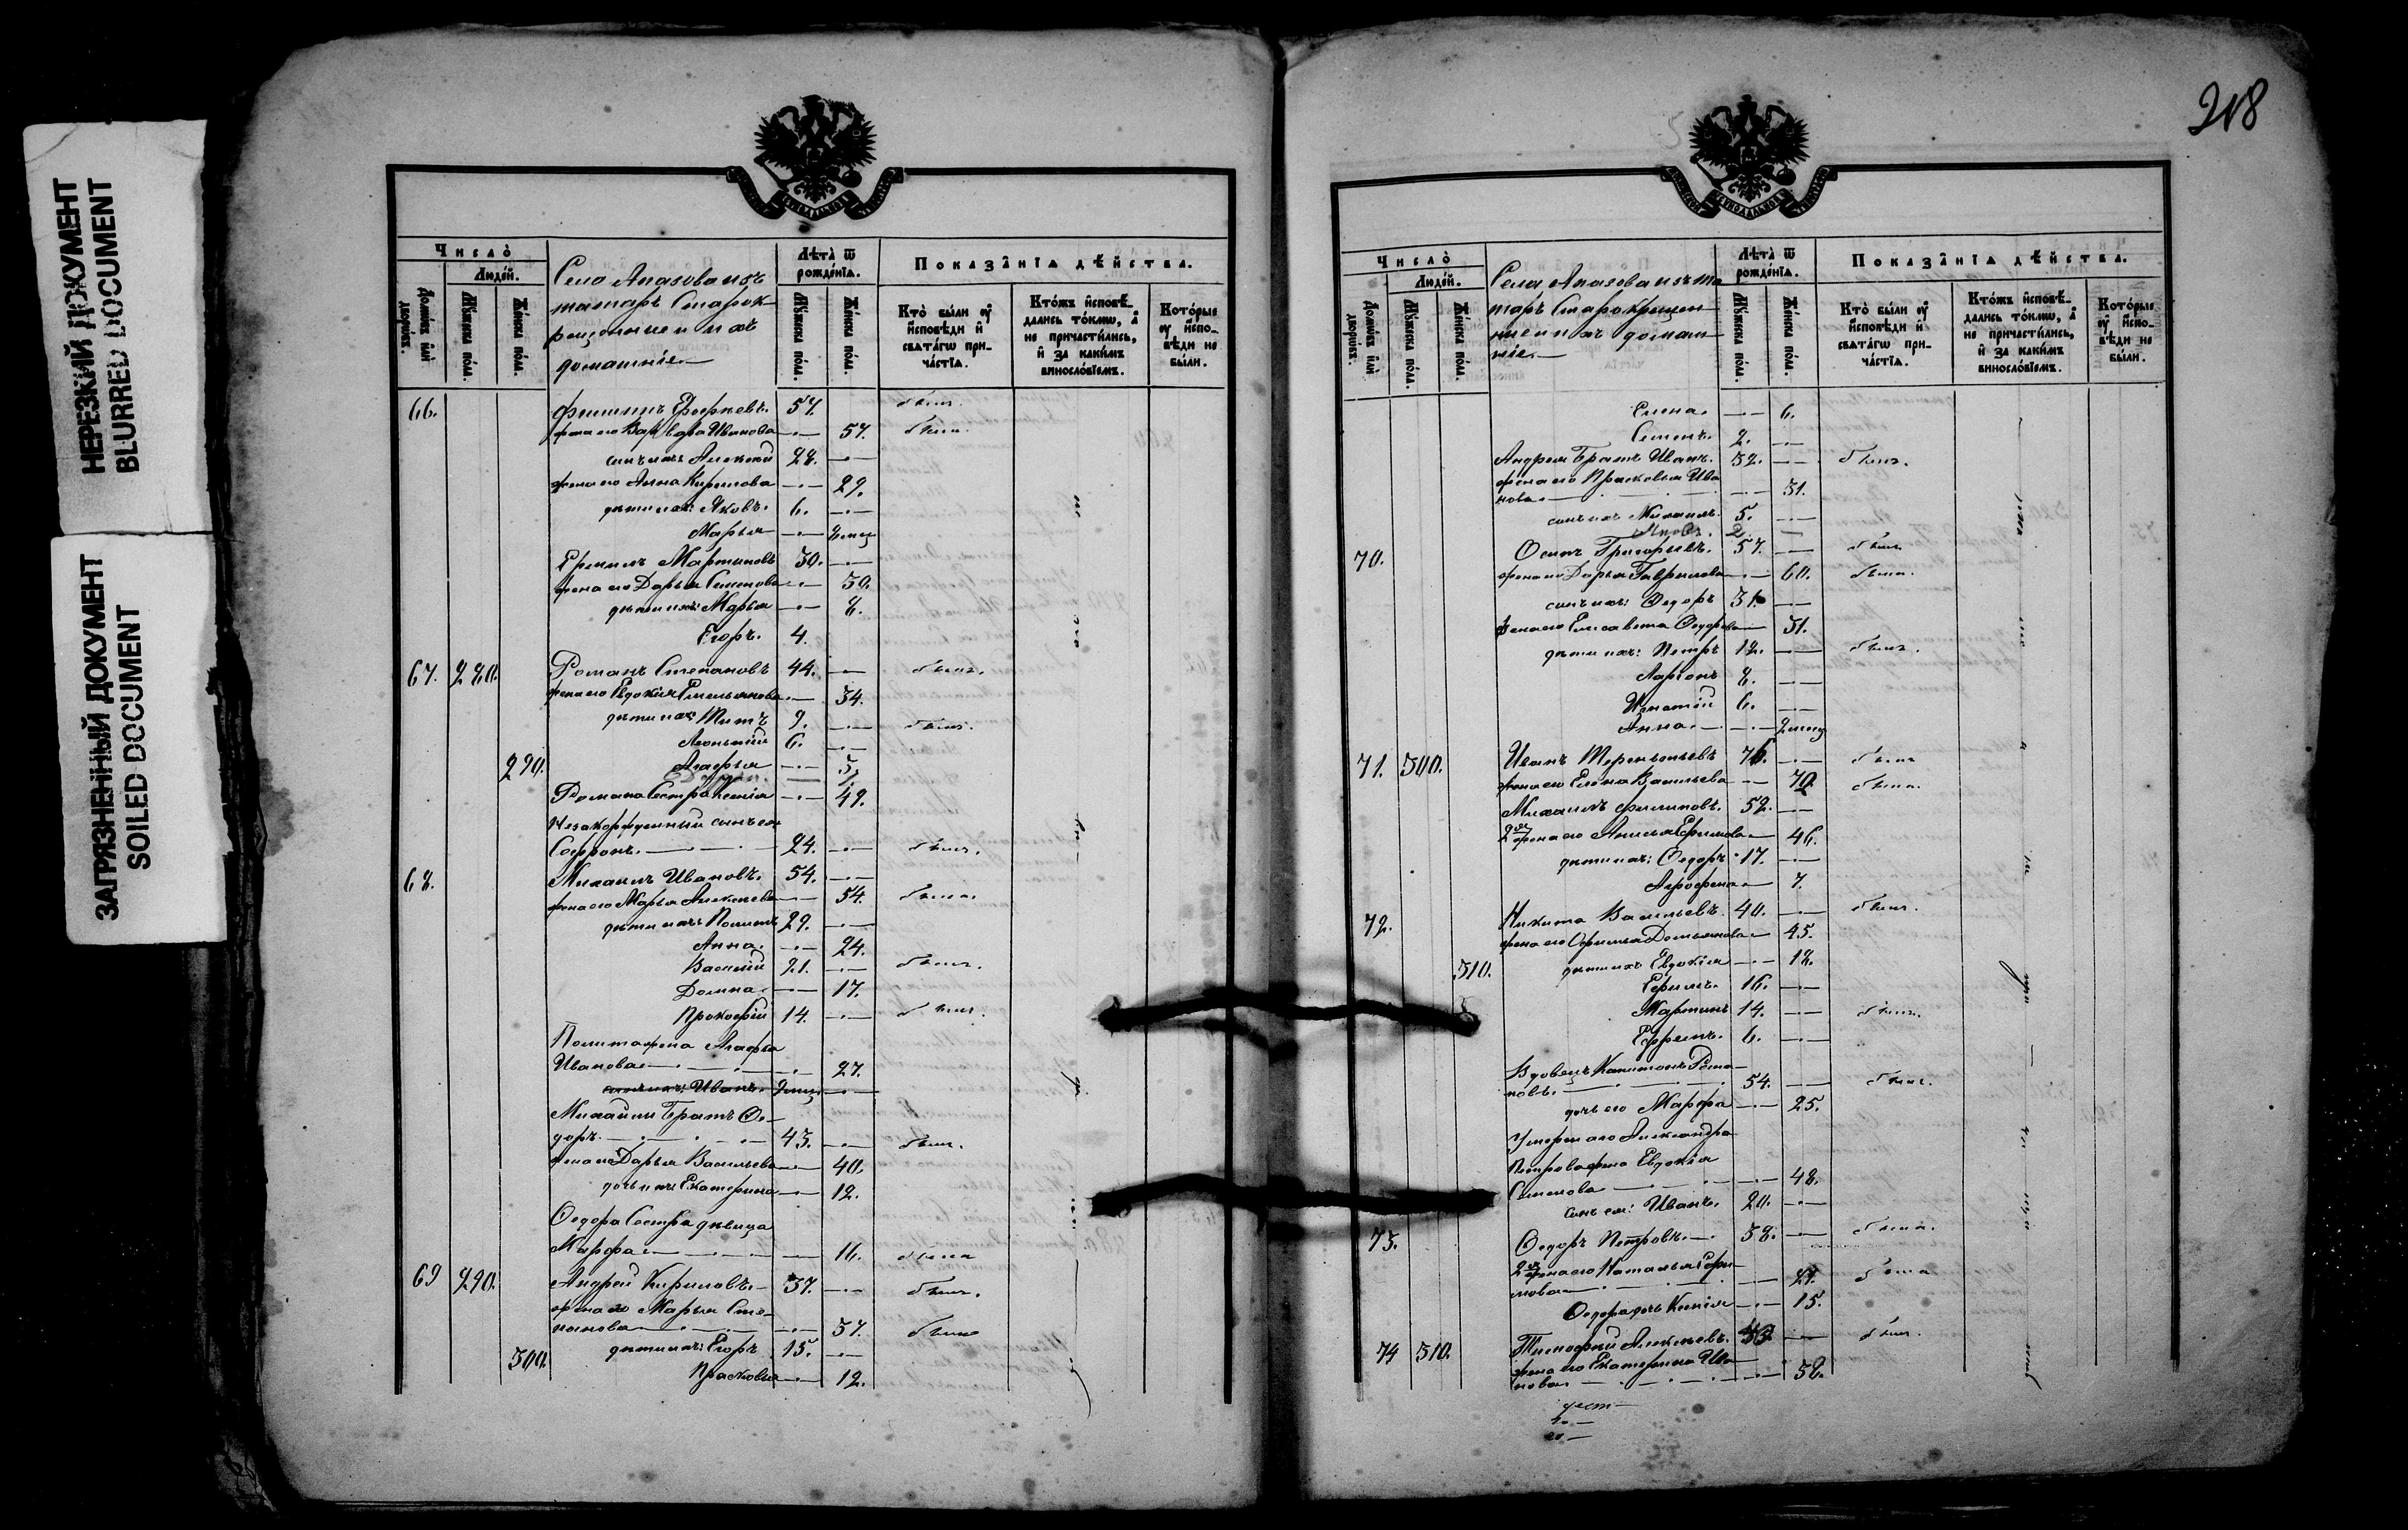 НЕРЕЗКИЙ ДОКУМЕНТ
BLURRED DOCUMENT
ЗАГРЯЗНЕННЫЙ ДОКУМЕНТ
SOILED DOCUMENT
Число̀
Людей.
Домѡвъ или дворѡвъ.
Мꙋжеска полꙋ.
Женска полꙋ.
Село Апазова изъ
татаръ Старок
рещенные и ихъ
домашніе
Лѣта̀ ѿ
рожденїѧ.
Мꙋжеска полꙋ.
Женска полꙋ.
Показанїѧ дѣйства.
Кто̀ были оу
исповѣди и
свѧтагѡ при-
частїѧ.
Ктожъ исповѣ-
дались токмѡ, а
не причастились,
и за какимъ
винословїемъ.
Которые
оу испо-
вѣди не
были.
66. Филиппъ Ерофеевъ. 57. былъ.
жена его Варвара Иванова 57. была.
сынъ ихъ Алексей 28.
жена его Анна Кирилова 29.
дети ихъ: Яковъ. 6.
Марья
Еремилъ Мартиновъ 30.
жена его Дарья Семенова 30.
дети ихъ: Марья 8.
Егоръ. 4.
67. 280. Романъ Степановъ 44. былъ.
жена его Евдокія Емельянова 34.
дети ихъ: Титъ 9. былъ.
Леонтій 6.
290. Агафья 3,
Романа Сестра Ксенія 49.
Незакоррженный сынъ ея
Софронъ. 24. былъ.
68. Михаилъ Ивановъ. 54.
жена его Марья Алексеева 54. была.
дети ихъ: Филиппъ 29.
Анна. 24.
Василій 21. былъ.
Домна. 17.
Прокофій 14. былъ.
жена Агафья
Иванова 27.
сынъ ихъ: Иванъ.
Михайлы братъ Ѳе-
доръ. 43. былъ.
жена его Дарья Васильева 40.
дочь ихъ: Екатерина 12.
Ѳедора Сестра девица
Марфа 16. была
69 290. Андрей Кириловъ. 37. былъ.
жена его Марья Сте-
панова 37. была
дети ихъ: Егоръ 15.
300. Прасковья 12.
218
Число̀
Людей.
Домѡвъ или дворѡвъ.
Мꙋжеска полꙋ.
Женска полꙋ.
Села Апазова изъ та
таръ Старокрещен
ные и ихъ домаш
ніе.
Лѣта̀ ѿ
рожденїѧ.
Мꙋжеска полꙋ.
Женска полꙋ.
Показанїѧ дѣйства.
Кто̀ были оу
исповѣди и
свѧтагѡ при-
частїѧ.
Ктожъ исповѣ-
дались токмѡ, а
не причастились,
и за какимъ
винословїемъ.
Которые
оу испо-
вѣди не
были.
Елена. 6.
Семенъ. 2.
Андрея братъ Иванъ. 32. былъ.
жена его Прасковья Ива
нова 31.
сынъ ихъ Михаилъ. 5.
Яковъ. 2
70. Осипъ Григорьевъ. 57. былъ
жена его Дарья Гаврилова 60. была.
сынъ ихъ: Ѳедоръ 31.
жена его Елисавета Ѳедорова 31.
дети ихъ: Петръ 12. былъ.
Ларіонъ 8.
Игнатій 6.
Анна.
71. 300. Иванъ Терентьевъ 76. былъ
жена его Елена Васильева 70. была.
Михаилъ Филиповъ. 52.
2я жена его Анисья Ефимова 46.
дети ихъ: Ѳедоръ 17.
Агрофена 7.
72. Никита Васильевъ. 40. былъ.
жена его Офимья Демьянова 45.
310. дети ихъ Евдокія 18.
Ефимъ. 16.
Мартинъ 14. былъ.
Ефремъ. 6.
Вдовецъ Капитонъ Рома-
новъ. 54. былъ.
дочь его Марфа 25.
Умершаго Александра
Петрова жена Евдокія
Семенова 48.
сынъ ея: Иванъ. 20.
73. Ѳедоръ Петровъ. 38. былъ.
2я жена его Наталья Ефи-
мова 27. была
Ѳедора дочь Ксенія 15.
74 310. Тимофей Алексеевъ. былъ.
жена его Екатерина Ива
нова 58.